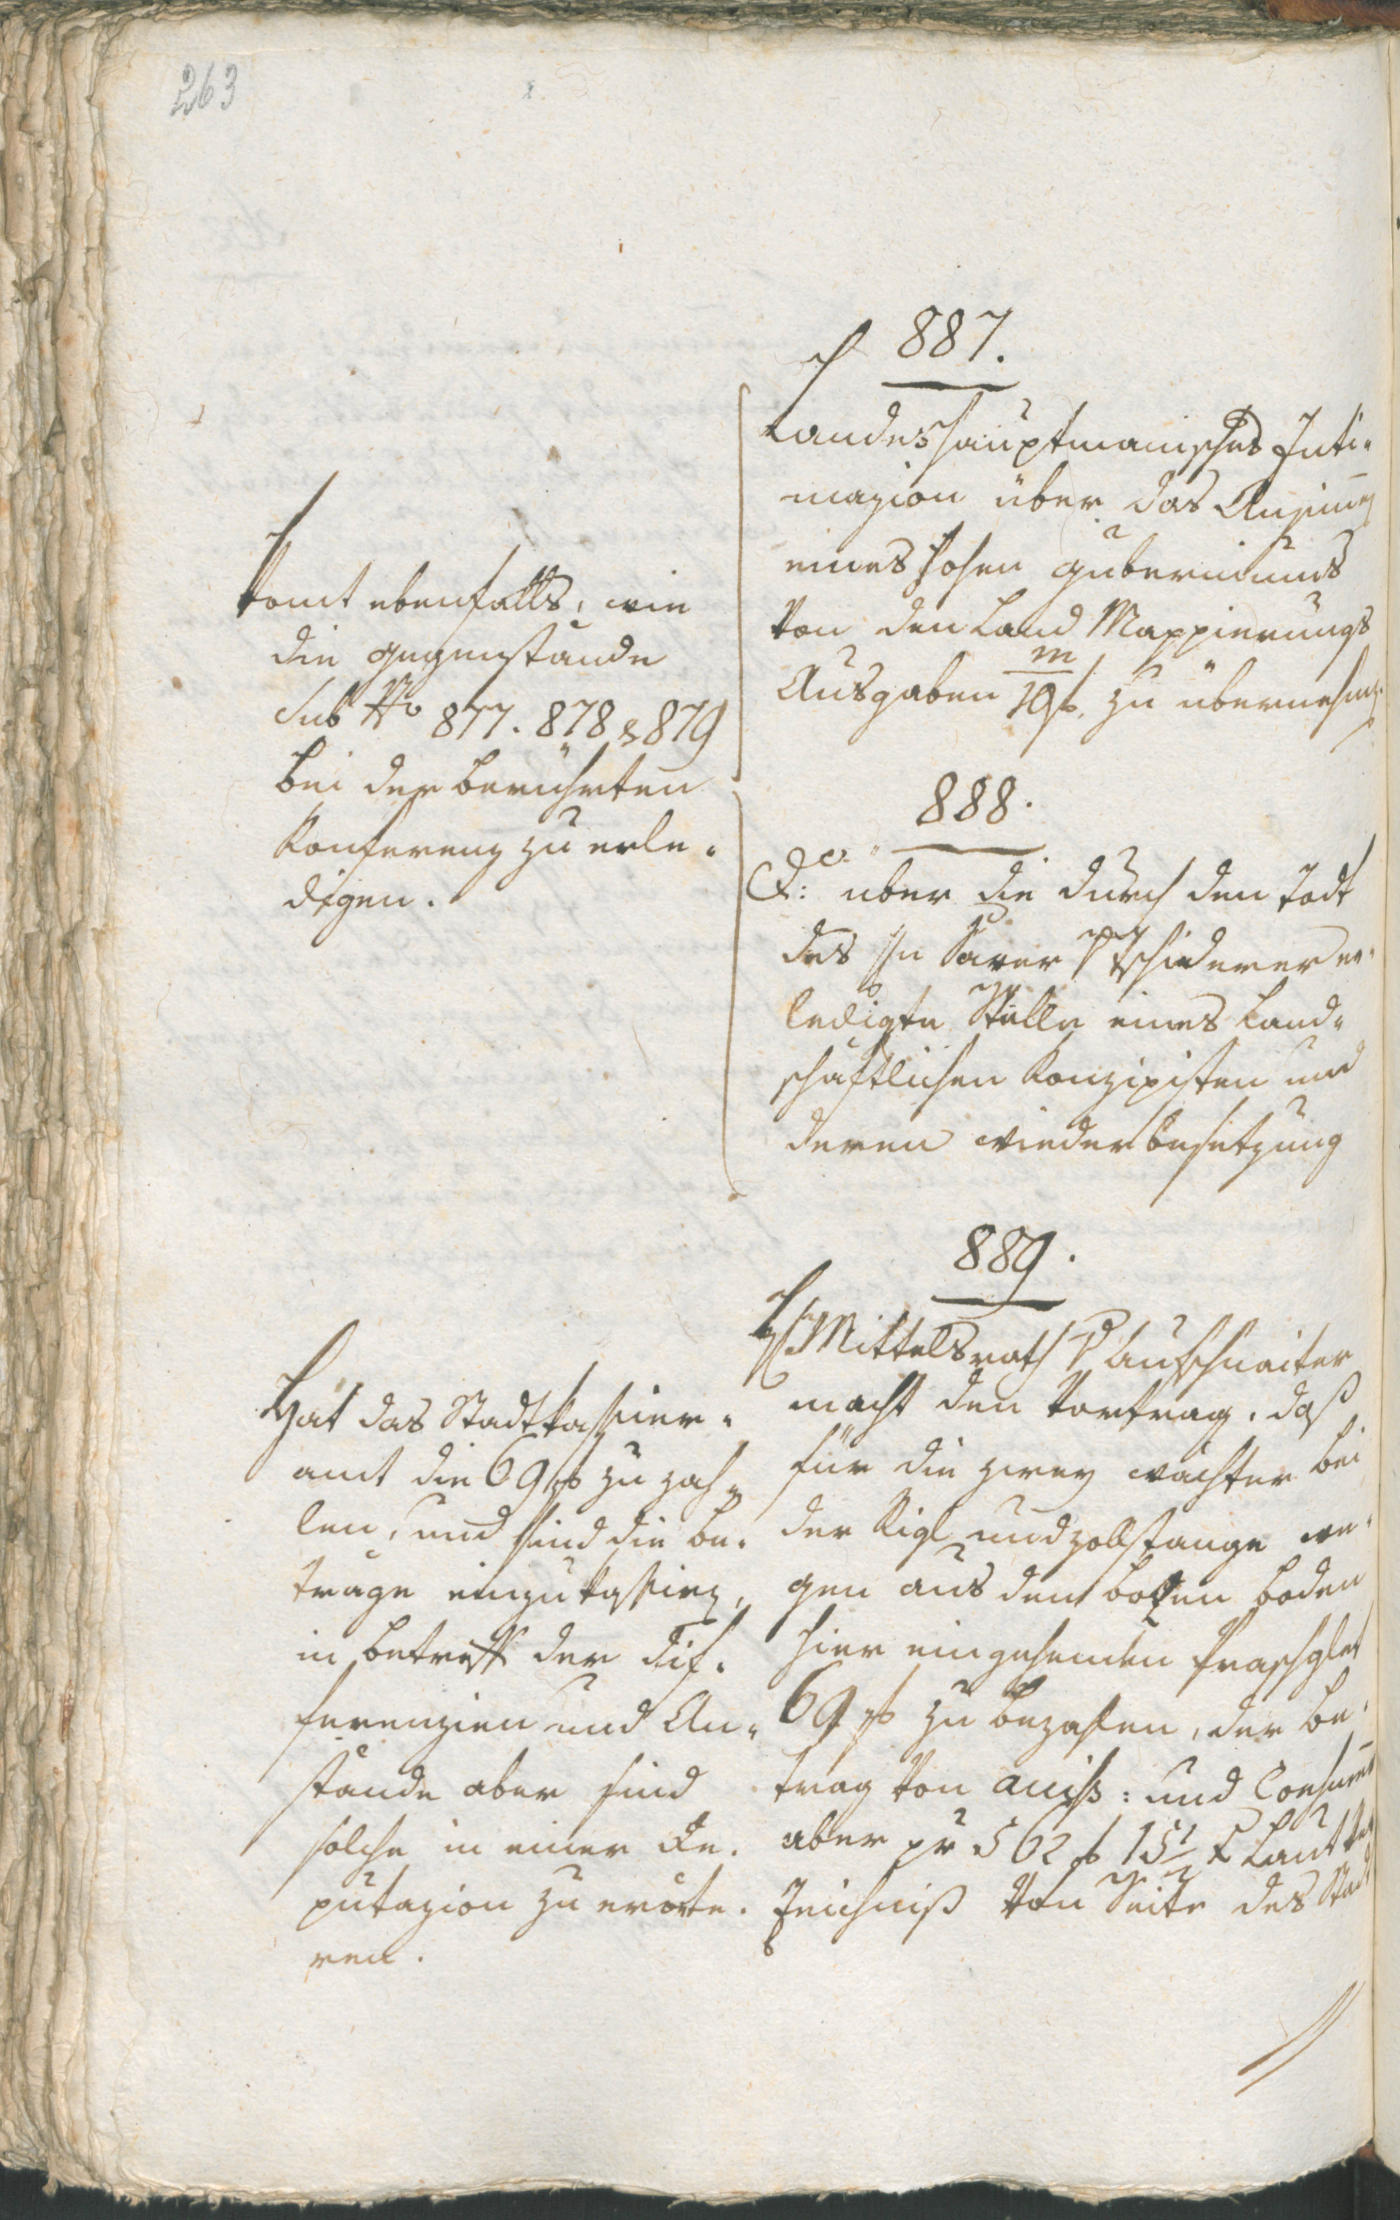 263
887.
Landeshauptmanisches Inti-
mazion über das Ansinnen
eines hohen guberniums
von den Land Mappierungs
Ausgaben 10 m f. zu übernehmen
Komt ebenfalls, wie
die gegenstände
sub No 877. 878 & 879
bei der berührten
Konferenz zu erle-
digen.
888.
do. über die durch den Todt
des Hn Tschiderer er-
ledigte Stelle eines Land-
schaftlichen Konzipisten und
deren wiederbesetzung
889.
H. Mittelsrath v Aufschnaiter
macht den Vortrag, daß
für die zwey wächter bei
der Rigl und zollstange we-
gen aus dem bozen boden
hier eingehenden Praschglet
69 f zu bezahlen, der be-
trag von acciß: und Consumo
aber pr 562 f 15 1/2 x Laut Ver
zeichniß von Seite des Stadt
Hat das Stadtkassier-
amt die 69 f zu zah-
len, und sind die be-
träge einzukassiren,
in betreff der Dif-
ferenzien und An-
stände aber sind
solche in einer De-
putazion zu erörte-
ren.